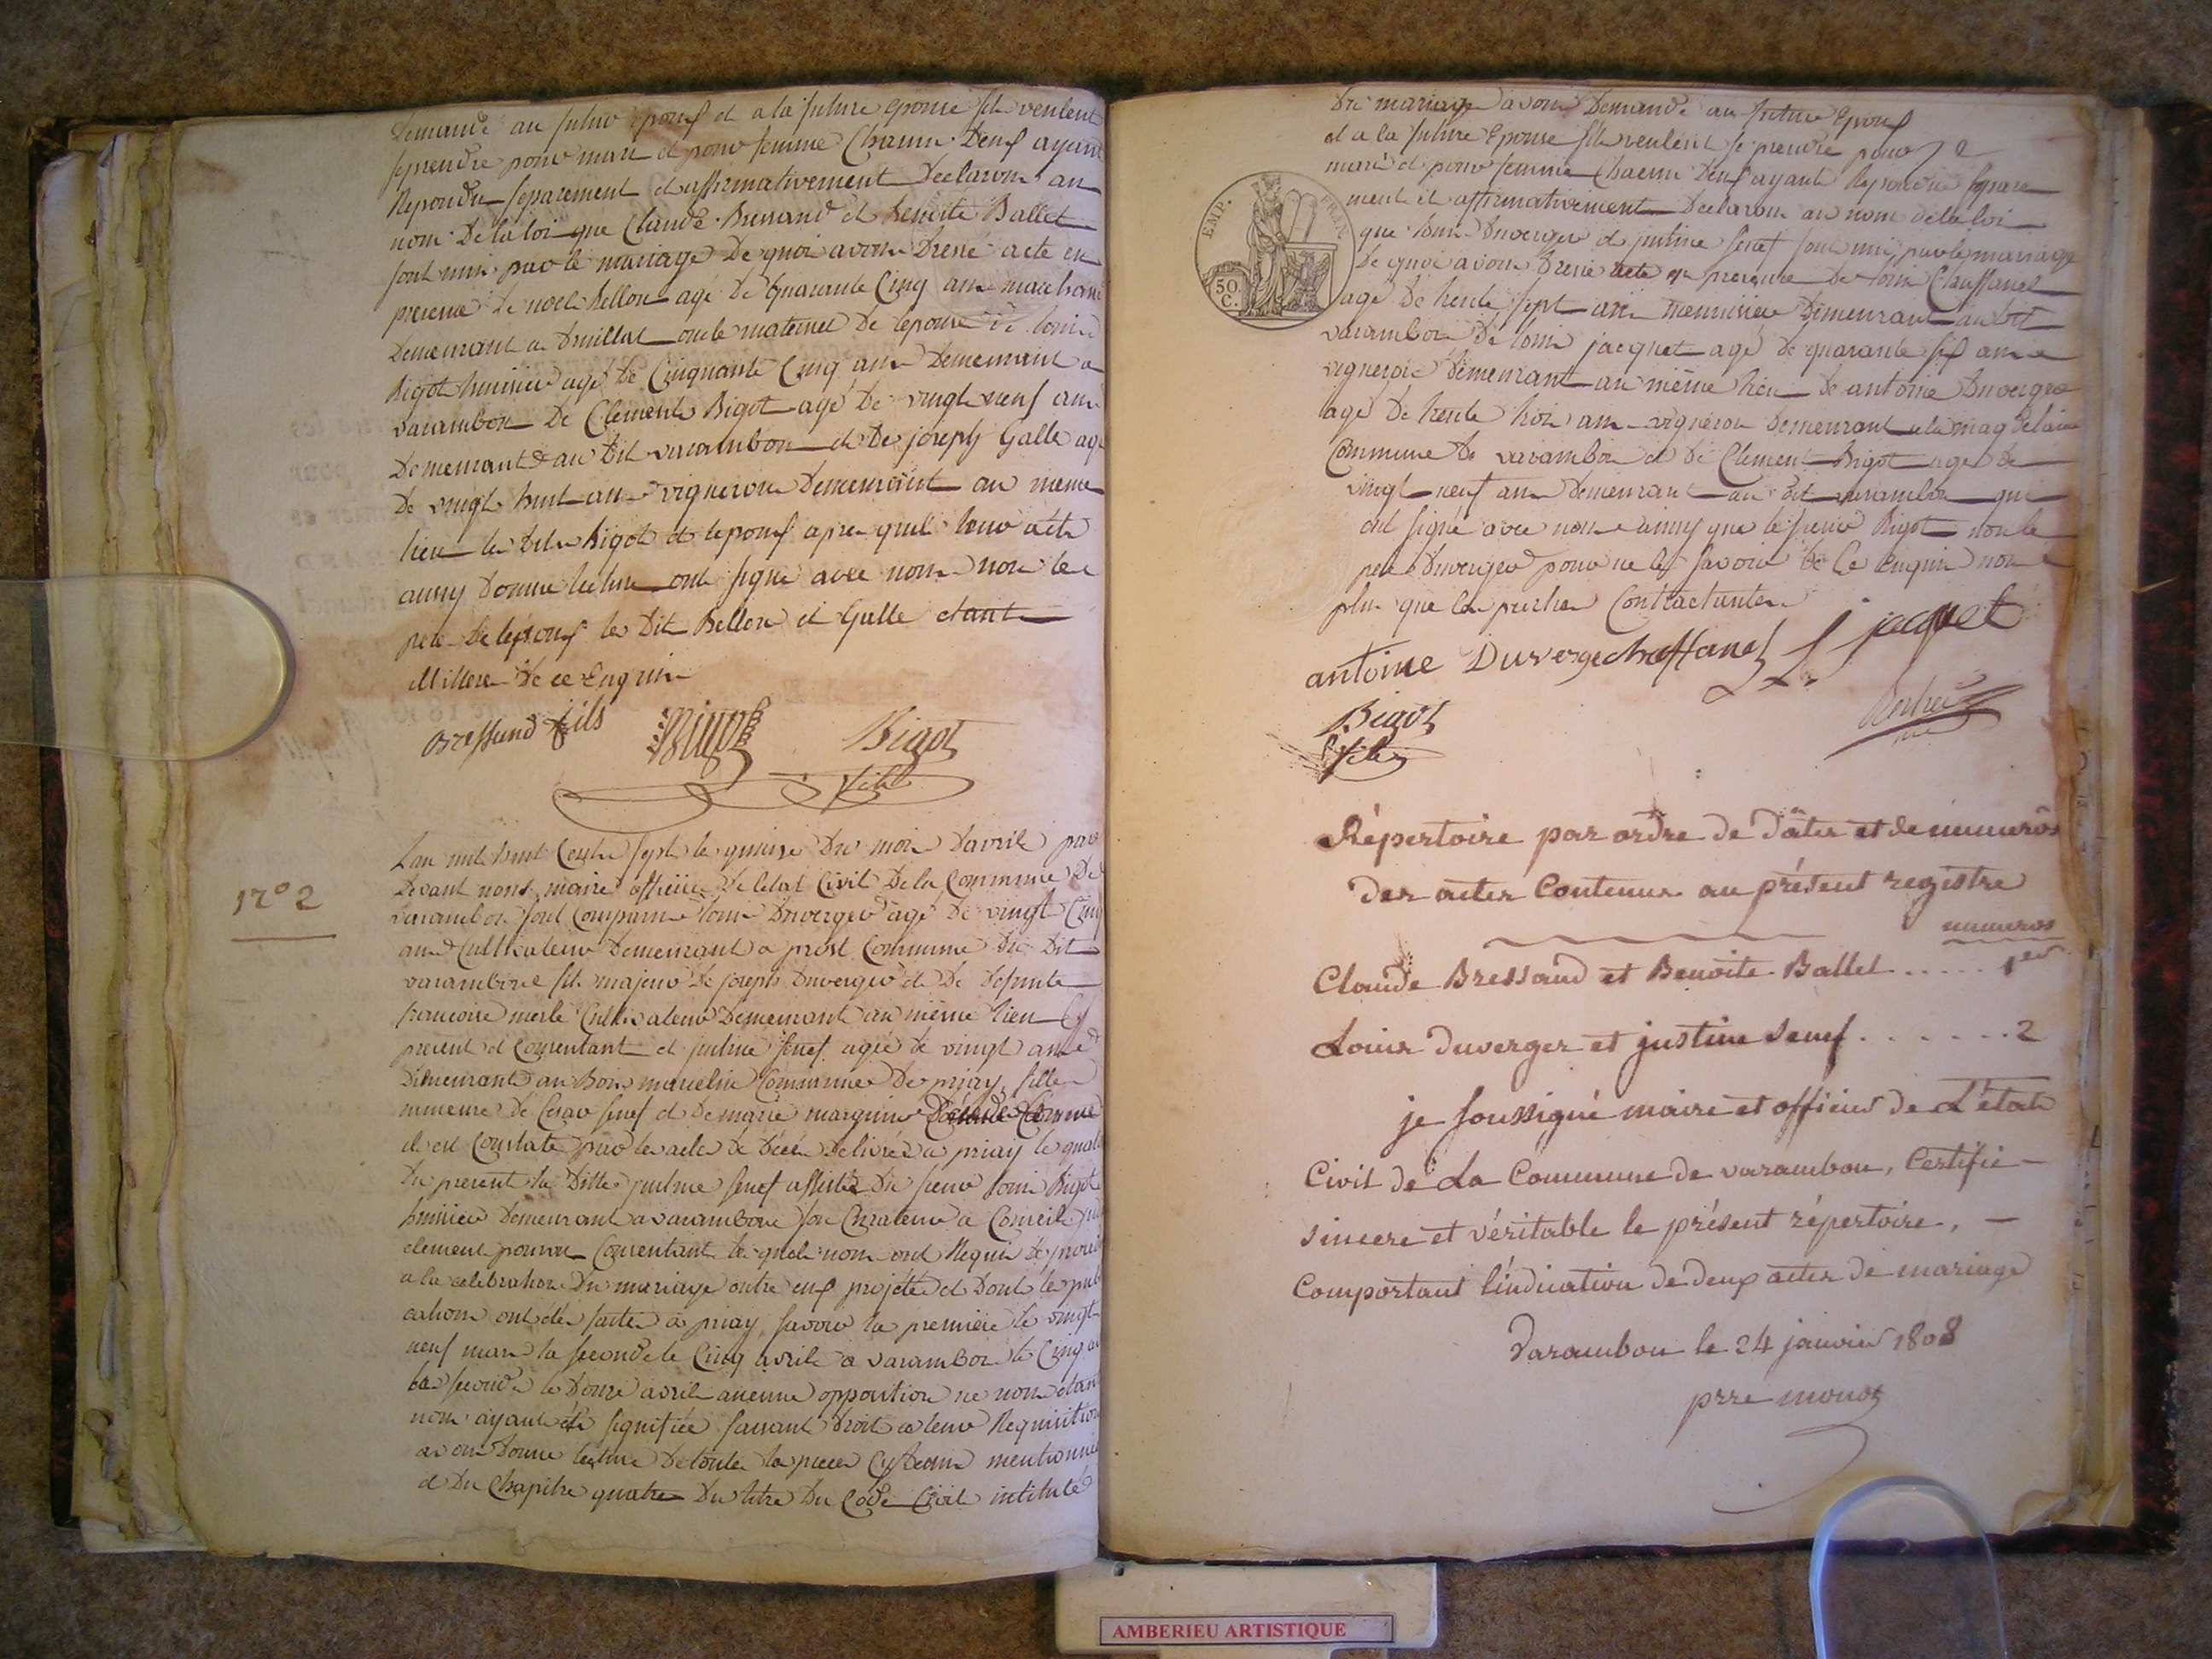 Demande au futur epoux et a la future epouse sils veulent
se prendre pour mari et pour femme Chacun Deux ayant
Repondu separement et affirmativement Declarons au
nom De la loi que Claude Bressand et Benoite Ballet
sont unis par le mariage De quoi avons Dressé acte en
presence de noel Bellon agé De quarante Cinq ans marchand
Demeurant a Druillat oncle maternel De lepouse de louis
Bigot huissier agé De Cinquante Cinq ans Demeurant a
varambon De Clement Bigot agé De vingt neuf ans
Demeurant au Dit varambon et De joseph Galle agé
De vingt huit ans vigneron Demeurant au meme
lieu les Dits Bigot et lepoux apres quil leur a eté
aussy Donné lecture ont signé avec nous non le
pere De lepoux les Dit Bellon et Galle etant
illiteré De ce Enquis
Bressand fils Bigot Bigot
fils
N° 2
Lan mil huit Cents sept le quinze Du mois Davril par
Devant nous maire officier De letat Civil De la Commune De
varambon sont Comparus louis Duverger agé De vingt Cinq
ans Cultivateur Demeurant a prost Commune Du Dit
varambon fils majeur De joseph Duverger et De Defunte
francoise merle Cultivateur Demeurant au même lieu Cy
present et Consentant et justine senef agée de vingt ans
Demeurant au Bois Commune De priay, fille
mineure De Cesar senef et De marie
il est Constaté par les actes de Décés Délivrés a priay le quatre
Du present la Ditte justine senef assistée Du sieur louis Bigot
huissier Demeurant a varambon son Curateur a Conseil
element pourvu Consentant les quels nous ont Requis De
a la celebration Du mariage entre eux projetté et Dont les publi
cations ont été faites à priay, savoir la premiere le vingt
neuf mars la seconde le Cinq avril a varambon le Cinq
la seconde le Douze avril aucune opposition ne nous etant
nous ayant été signifiée faisant Droit a leur Requisition
avons Donné lecture De toutes les pieces Cy mentionnées
et Du Chapitre quatre Du titre Du Code Civil intitulé
Du mariage avons Demandé au futur Epoux
et a la future Epouse sils veulent se prendre pour
mari et pour femme Chacun Deux ayant Repondu separe
ment et affirmativement Declarons au nom De la loi
que louis Duverger et justine senef sont unis par le mariage
De quoi avons Dressé acte en presence De louis Chaffanel
agé De trente sept ans menuisier Demeurant au Dit
varambon De louis jacquet agé de quarante six ans
vigneron Demeurant au même lieu De antoine Duverger
agé De trente trois ans vigneron Demeurant a la magdelaine
Commune De varambon et De Clement Bigot agé De
vingt neuf ans Demeurant au Dit varambon qui
ont signé avec nous ainsy que le sieur Bigot non le
pere Duverger pour ne le savoir De Ce Enquis non
plus que les parties Contractantes
EMP. FRAN.
50
C.
antoine Duverge chaffanel L jacquet
Bigot
fils
Répertoire par ordre de dâtes et de numeros
des actes Contenus au présent registre
numeros
Claude Bressand et Benoite Ballet ..... 1er
Louis duverger et justine Senef ....... 2
je soussigné maire et officier de L'état
Civil de La Commune de varambon, Certifie
sincere et véritable le présent répertoire,
Comportant l'indication de deux actes de mariage
Varambon le 24 janvier 1808
prre monot
AMBERIEU ARTISTIQUE